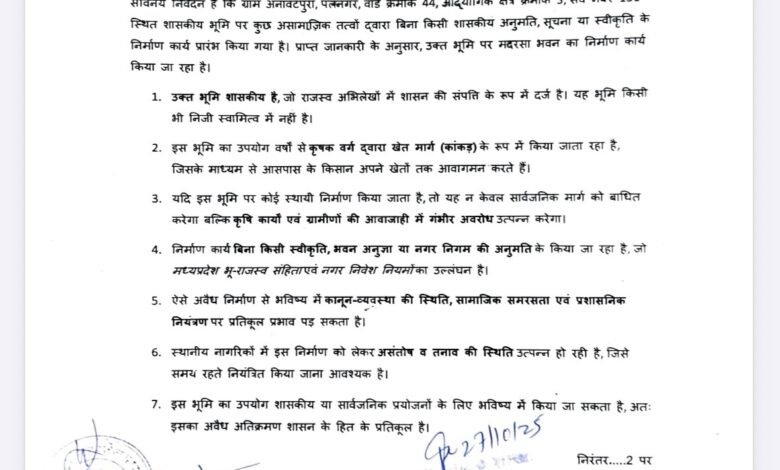 सविनय निवेदन है कि ग्राम अनावटपुरा, पलनगर, वार्ड क्रमांक 44, औद्योगिक क्षेत्र क्रमांक
स्थित शासकीय भूमि पर कुछ असामाजिक तत्वों द्वारा बिना किसी शासकीय अनुमति, सूचना या स्वीकृति के
निर्माण कार्य प्रारंभ किया गया है। प्राप्त जानकारी के अनुसार, उक्त भूमि पर मदरसा भवन का निर्माण कार्य
किया जा रहा है।
1. उक्त भूमि शासकीय है, जो राजस्व अभिलेखों में शासन की संपत्ति के रूप में दर्ज है। यह भूमि किसी
भी निजी स्वामित्व में नहीं है।
2. इस भूमि का उपयोग वर्षों से कृषक वर्ग द्वारा खेत मार्ग (कांकड़) के रूप में किया जाता रहा है,
जिसके माध्यम से आसपास के किसान अपने खेतों तक आवागमन करते हैं।
3. यदि इस भूमि पर कोई स्थायी निर्माण किया जाता है, तो यह न केवल सार्वजनिक मार्ग को बाधित
करेगा बल्कि कृषि कार्यों एवं ग्रामीणों की आवाजाही में गंभीर अवरोध उत्पन्न करेगा।
4. निर्माण कार्य बिना किसी स्वीकृति, भवन अनुज्ञा या नगर निगम की अनुमति के किया जा रहा है, जो
मध्यप्रदेश भू-राजस्व संहिता एवं नगर निवेश नियमों का उल्लंघन है।
5. ऐसे अवैध निर्माण से भविष्य में कानून-व्यवस्था की स्थिति, सामाजिक समरसता एवं प्रशासनिक
नियंत्रण पर प्रतिकूल प्रभाव पड़ सकता है।
6. स्थानीय नागरिकों में इस निर्माण को लेकर असंतोष व तनाव की स्थिति उत्पन्न हो रही है, जिसे
समय रहते नियंत्रित किया जाना आवश्यक है।
7. इस भूमि का उपयोग शासकीय या सार्वजनिक प्रयोजनों के लिए भविष्य में किया जा सकता है, अतः
इसका अवैध अतिक्रमण शासन के हित के प्रतिकूल है।
27/10/25
निरंतर.....2 पर